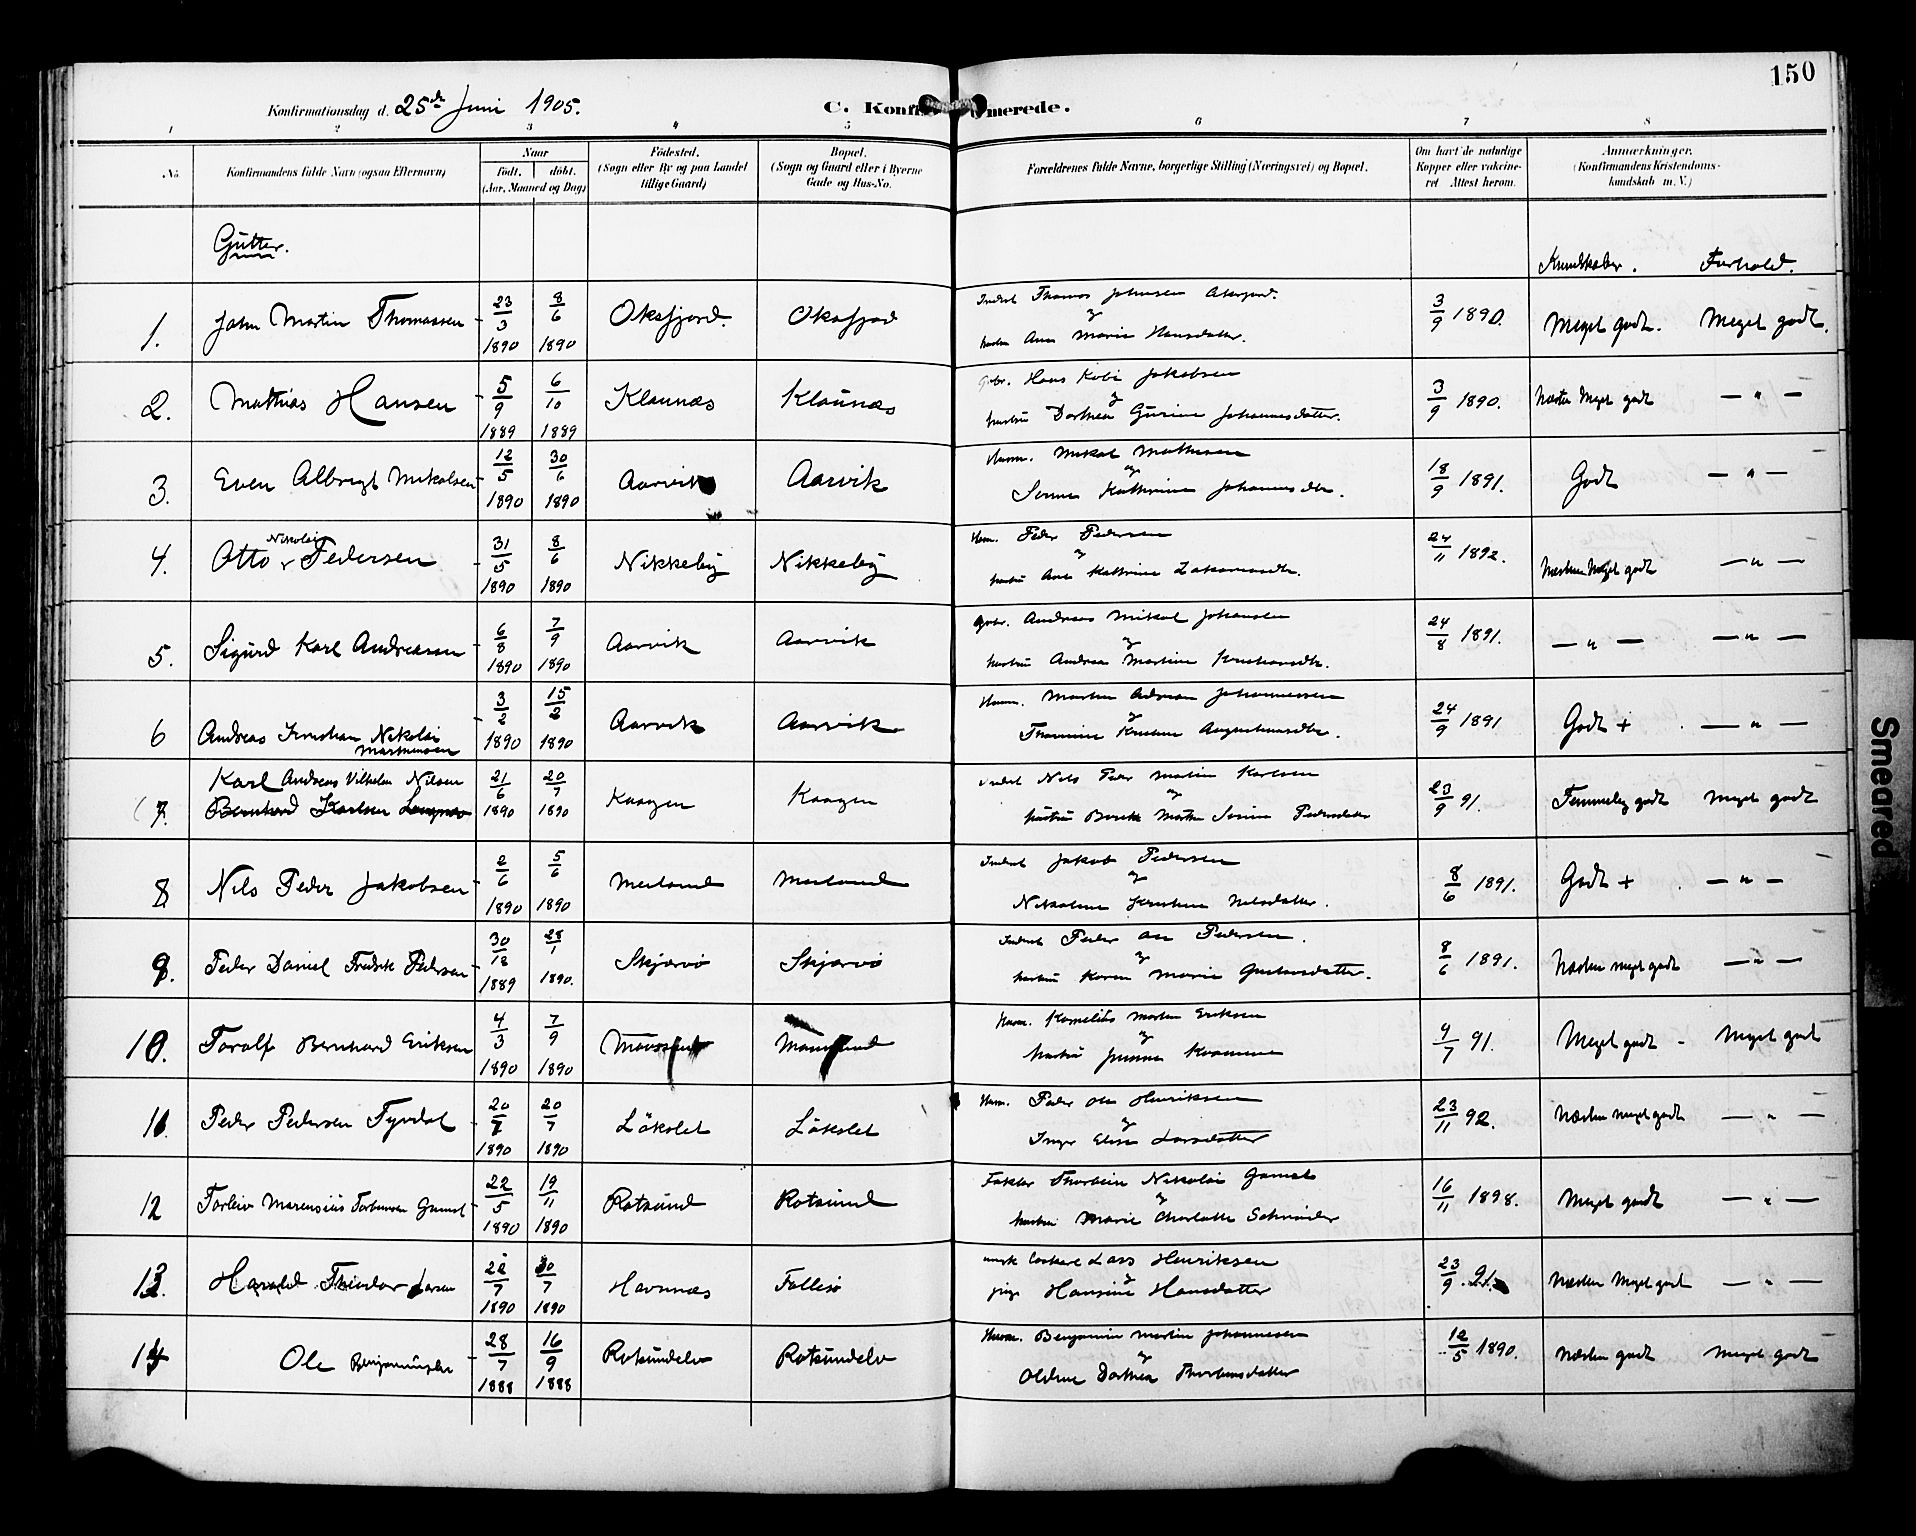 150
Konfirmationsdag d. 25de Juni 1905.
C. Konfirmerede.
1 2 3 4 5 6 7 8
No.
Konfirmandens fulde Navn (ogsaa Efternavn)
Naar
født. døbt.
(Aar, Maaned og Dag)
Fødested.
(Sogn eller By og paa Landet
tillige Gaard)
Bopæl.
(Sogn og Gaard eller i Byerne
Gade og Hus-No.
Forældrenes fulde Navne, borgerlige Stilling (Næringsvei) og Bopæl.
Om havt de naturlige
Kopper eller vakcine-
ret Attest herom.
Anmærkninger.
(Konfirmandens Kristendoms-
kundskab m. V.)
Gutter.
Kundskaber. Forhold.
1. John Martin Thomassen 23/3 1890 8/6 1890 Oksfjord. Oksfjord Thomas Johnsen
og
Ane Marie Hansdatter. 3/9 1890. Meget godt. Meget godt.
2. Mathias Hansen 5/9 1889 6/10 1889 Klaunæs Klaunæs Gbr. Hans Jakobsen
og
hustru Dorthea Gurine Johannesdatter. 3/9 1890. Næsten Meget godt — " —
3. Even Albrigt Mikalsen 12/5 1890 30/6 1890 Aarvik Aarvik Husm. Mikal Mathisen
og
Kathrine Johannesdtr. 18/9 1891. Godt — " —
4. Otto Nikolai Pedersen 31/5 1890 8/6 1890 Nikkeby Nikkeby Husm. Peder Pedersen
og
hustru Ane Kathrine Zakariasdtr. 24/11 1892. Næsten Meget godt — " —
5. Sigurd Karl Andreasen 6/8 1890 7/9 1890 Aarvik Aarvik Gbr. Andreas Mikal Johansen
og
hustru Andrea Martine Kristiansdtr. 24/8 1891. — " — — " —
6 Andreas Kristian Nikolai
Martinusen 3/2 1890 15/2 1890 Aarvik Aarvik Husm. Johannessen
og
Kristine Augustinusdtr. 24/9 1891 Godt + — " —
7. Karl Andreas Vilhelm Nilsen
Bernhard Karlsen 21/6 1890 20/7 1890 Kaagen Kaagen Inderst Nils Peder Martin Karlsen
og
hustru Berit Marthe Pedersdatter 23/9 91. Temmelig godt Meget godt
8 Nils Peder Jakobsen 2/6 1890 5/6 1890 Meiland Meiland Inderst Jakob Pedersen
og
Nikoline Kristine Nilsdatter. 8/6 1891. Godt + — " —
9. Peder Daniel Fredrik Pedersen 30/12 1889 28/1 1890. Skjærvø Skjærvø Inderst Peder Pedersen.
og
hustru Karen Marie Gustavsdatter. 8/6 1891. Næsten meget godt — " —
10. Toralf Bernhard Eriksen 4/3 1890 7/9 1890 Maursund Maursund Husm. Kornelius Morten Eriksen
og
hustru 9/7 91. Meget godt - Meget godt
11. Peder Pedersen Fyrdal 20/7 1890 20/7 1890 Løkslet Løkslet Husm. Peder Ole Henriksen
og
Inger Elise Larsdatter 23/11 92. Næsten meget godt — " —
12 Torleiv Marensius Torbensen Gamst 22/5 1890 19/11 1890 Rotsund Rotsund Faktor Nikolai Gamst
og
hustru Marie Charlotte Schrøder 16/11 1898. Meget godt — " —
13. Harald Theodor Larsen 22/7 1890 30/7 1890 Havnnæs Follesø Lars Henriksen
og
pige Hansine Hansdatter 23/9 91. Næsten Meget godt — " —
14 Ole Benjaminsen 28/7 1888 16/9 1888 Rotsundelv Rotsundelv Husm. Benjamin Martin Johannesen
og
Oldine Dorthea Thorbensdatter 12/5 1890. Næsten godt Meget godt
Smeared